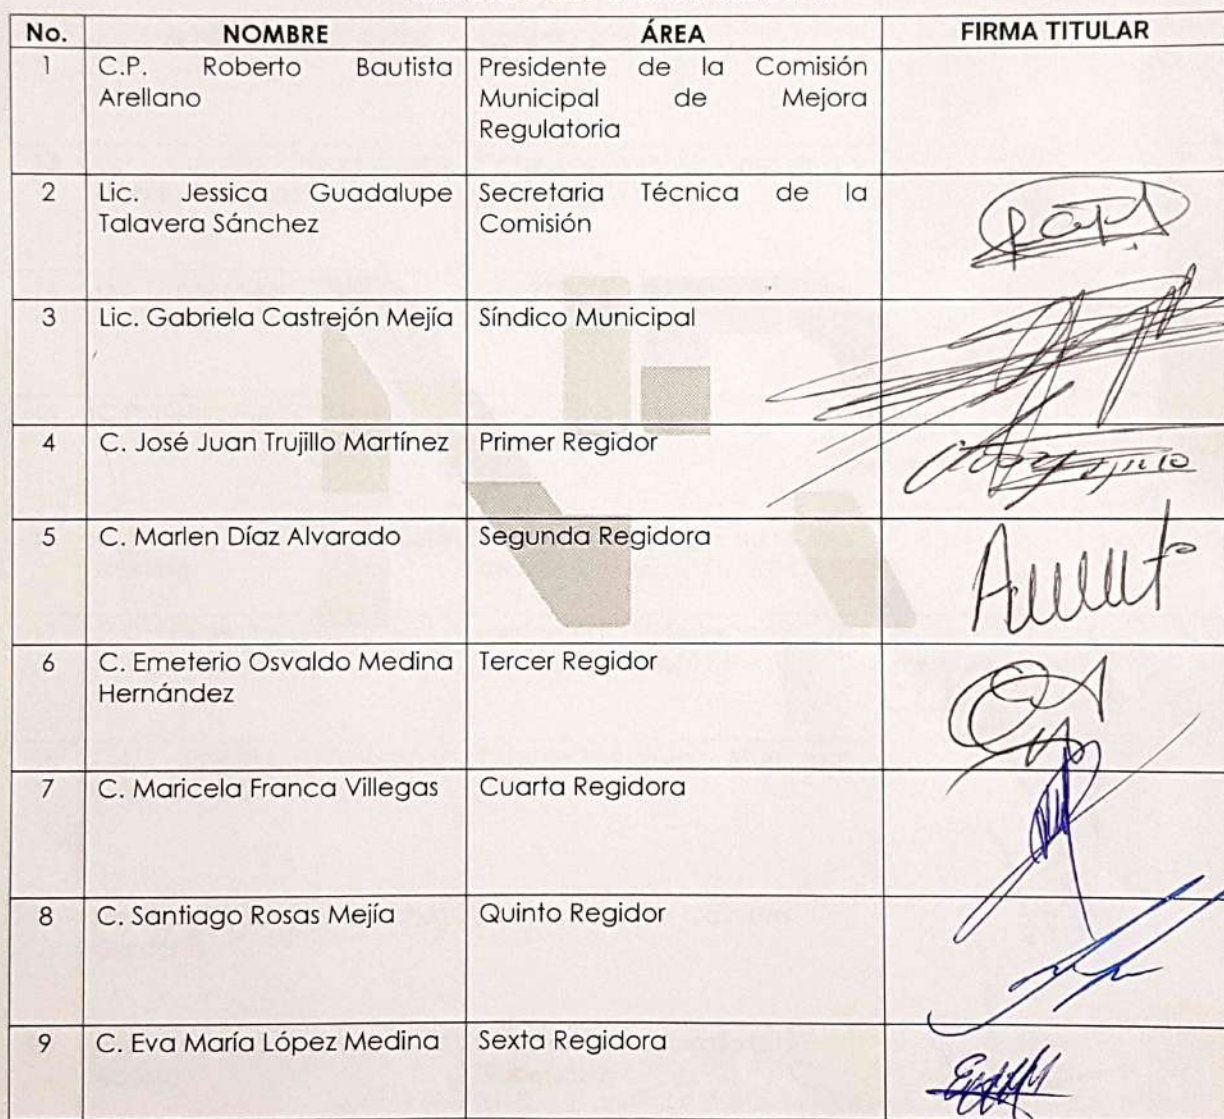 No. NOMBRE ÁREA FIRMA TITULAR
1 C.P. Roberto Bautista Presidente de la Comisión
Arellano Municipal de Mejora
Regulatoria
2 Lic. Jessica Guadalupe Secretaria Técnica de la
Talavera Sánchez Comisión
3 Lic. Gabriela Castrejón Mejía Síndico Municipal
4 C. José Juan Trujillo Martínez Primer Regidor
5 C. Marlen Díaz Alvarado Segunda Regidora
6 C. Emeterio Osvaldo Medina Tercer Regidor
Hernández
7 C. Maricela Franca Villegas Cuarta Regidora
8 C. Santiago Rosas Mejía Quinto Regidor
9 C. Eva María López Medina Sexta Regidora